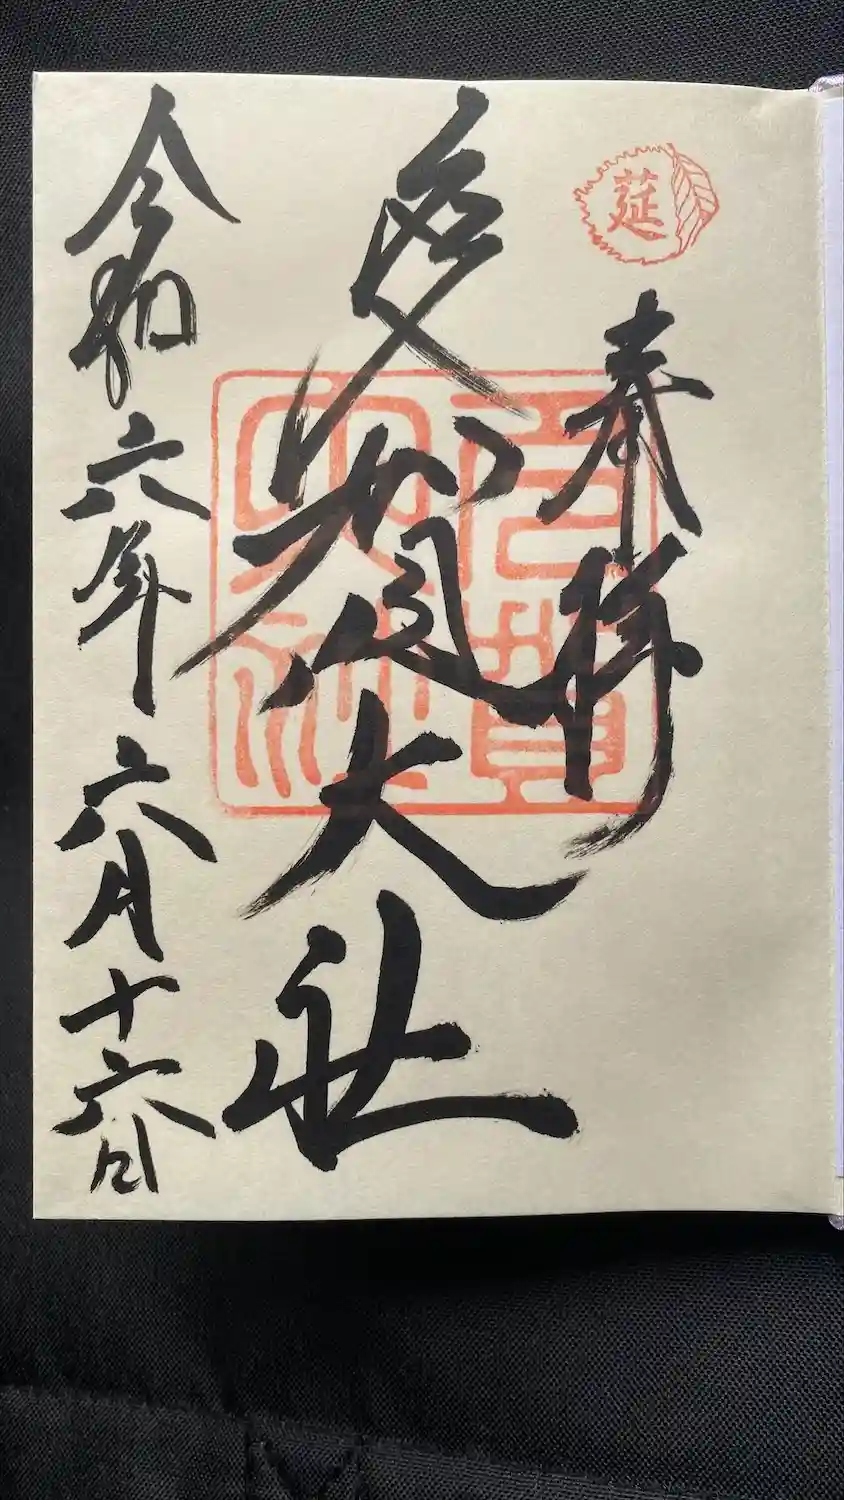 莚
奉拝
多賀大社
多賀
大社
令和六年六月十六日